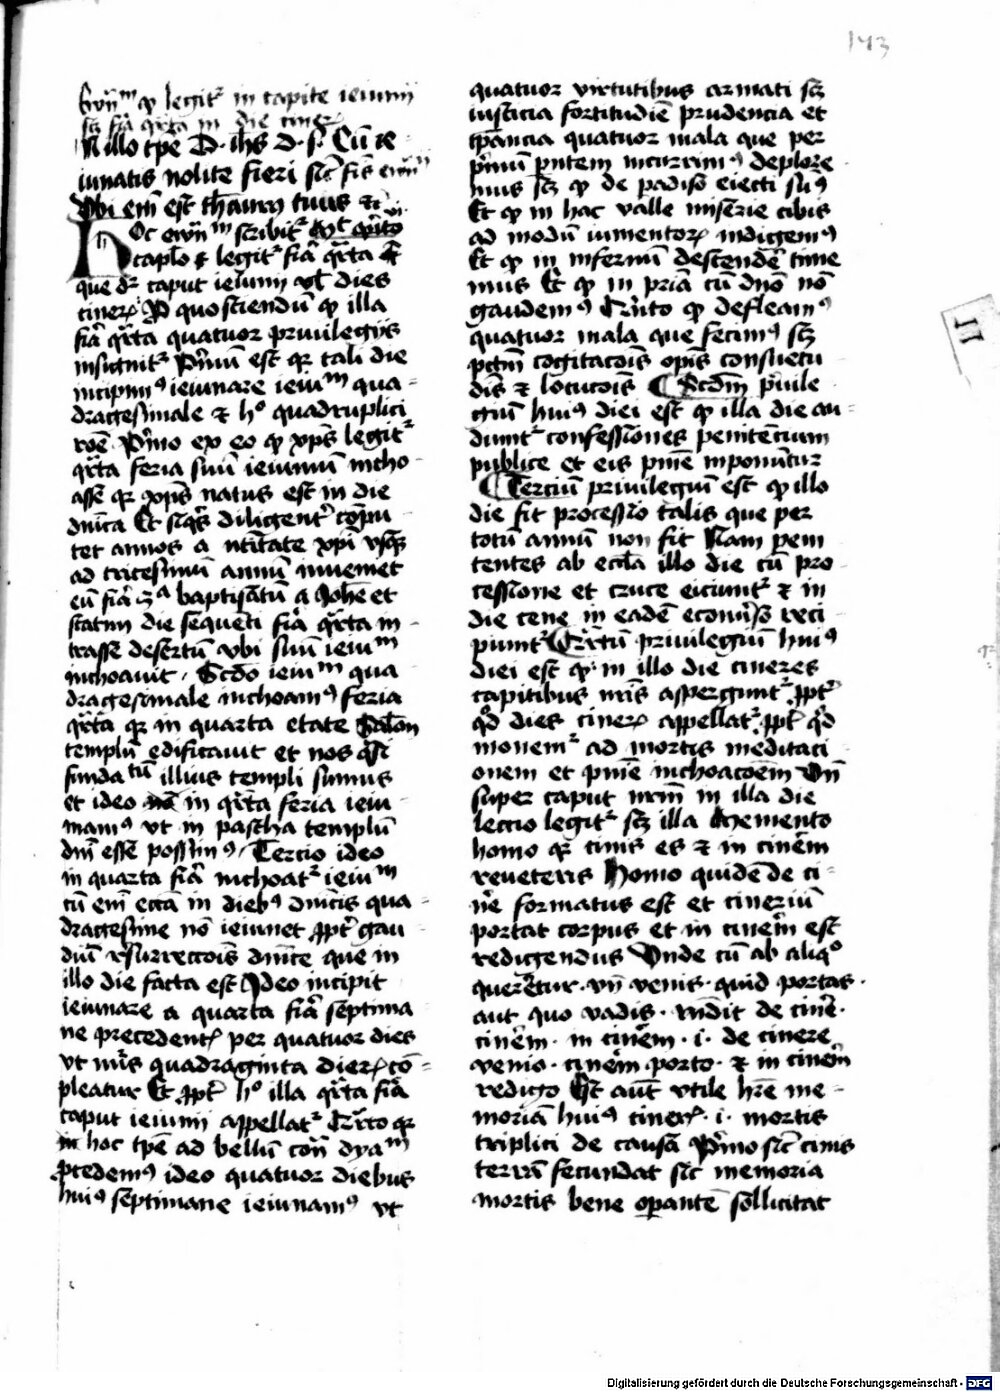 143
Ewnm qd legitr in capite ieiunii
scz fia qrta in die ciner
In illo tpe D. ihs d. s. Cu ie-
iunatis nolite fieri sic
Ubi em est thaurus tuus
Hoc ewnm scribitr
caplo legitr fia qrta
que dr caput ieiunii vel dies
ciner. Pro quo sciendu qd illa
fia qrta quatuor priuilegiis
insignitr Primu est qr tali die
incipim9 ieiunare ieium qua-
dragesimale et ho quadruplici
roe Primo ex eo qd xps legitr
qrta feria suu ieiuniu incho-
asse qr xps natus est in die
dnica Et siqs diligentr compu
tet annos a natitate xpi vsqz
ad tricesimu annu inueniet
eu fia baptisatu a Johe et
statim die sequeti fia qrta in-
trasse desertu vbi suu ieium
inchoauit. Scdo ieium qua
dragesimale inchoam9 feria
qrta qr in quarta etate Salon
templu edificauit et nos qsi
fundatu illius templi sumus
et ideo in qrta feria ieiu-
nam9 vt in pascha templu
dni esse possim9. Tercio ideo
in quarta fia inchoatr ieium
cu em eccia in dieb9 dnicis qua-
dragesime no ieiunet ppter gau
diu resurrectois dnice que in
illo die facta est Ideo incipit
ieiunare a quarta fia septima
ne precedent per quatuor dies
vt nris quadraginta dier. co-
pleatur Et ppter ho illa qrta fia
caput ieiunii appellatr Qrto qr
in hoc tpe ad bellu contra dyam
pcedem9 ideo quatuor diebus
hui9 septimane ieiunam9 vt
quatuor virtutibus armati scz
iusticia fortitudie prudencia et
tpancia quatuor mala que per
primu pntem incurrim9 deplore
mus scz qd de padiso eiecti sum9
Et qd in hac valle miserie cibis
ad modu iumentor indigem9
Et qd in infernu descende time
mus Et qd in pria cu dno no
gaudem9 Qrto qd defleam9
quatuor mala que fecim9 scz
pctm cogitacois opis consuetu
dis et locucois Scdm priuile
giu hui9 diei est qd illa die au-
diuntr confessiones penitencium
publice et eis pnie imponutur
Terciu priuilegiu est qd illo
die fit processio talis que per
totu annu non fit Nam peni
tentes ab eccla illo die cu pro
cessione et cruce eiciuntr et in
die cene in eade econuerso reci
piuntr Qrtu priuilegiu hui9
diei est qd in illo die cineres
capitibus nris asperguntr ppter
qd dies ciner appellatr ppter qd
monemr ad mortis meditaci
onem et pnie inchoacoem Vn
super caput nrm in illa die
leccio legitr scz illa Memento
homo qr cinis es et in cinem
reueteris Homo quide de ci-
ne formatus est et cineriu
portat corpus et in cinem est
redigendus Unde cu ab aliqo
quereretur. vn venis. quid portas.
aut quo vadis. rndit de cine.
cinem. in cinem. i. de cinere
venio. cinem. porto. et in cinem
redigo Est aut vtile hre me-
moria hui9 ciner. i. mortis
triplici de causa Primo sic cinis
terra fecundat sic memoria
mortis bene operante sollicitat
Digitalisierung gefördert durch die Deutsche Forschungsgemeinschaft - DFG